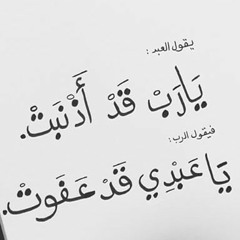 يقول العبد :
يَارَبْ قَدْ أَذْنَبتْ.
فيقول الرب :
يَا عَبْدِي قَدْ عَفَوتْ.